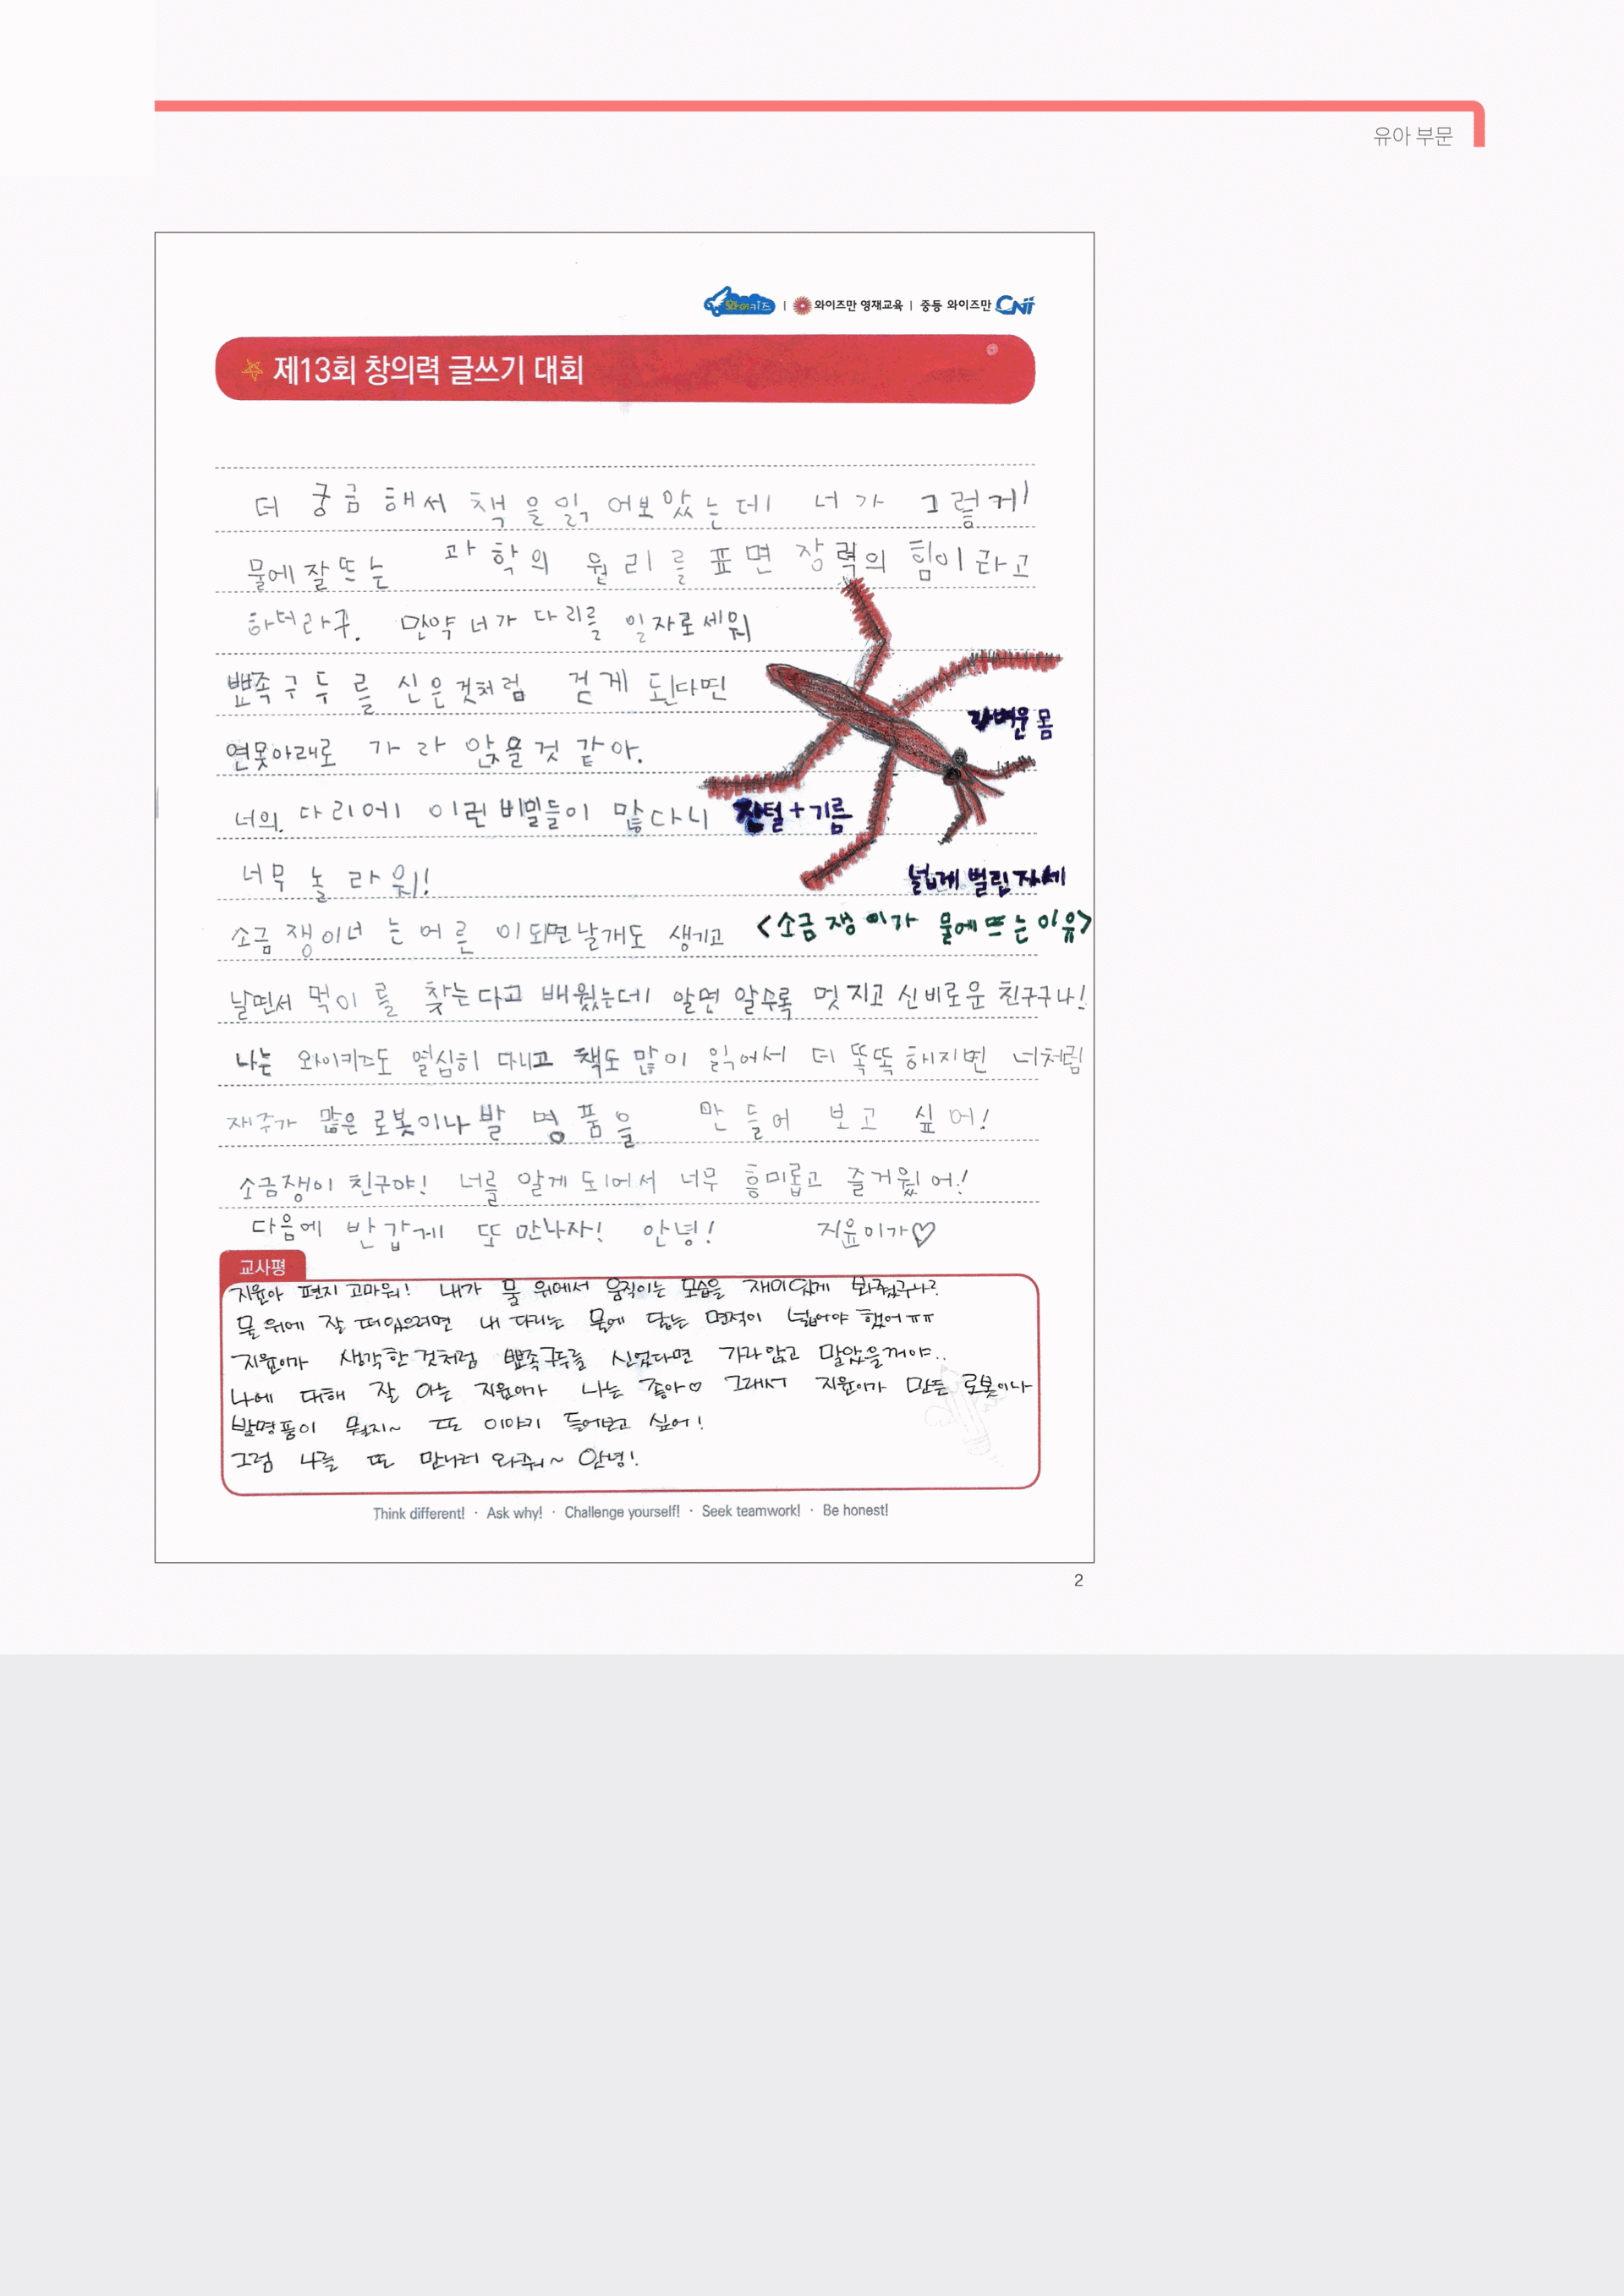 유아 부문
와이키즈 | 와이즈만 영재교육 | 중등 와이즈만 CNi
제13회 창의력 글쓰기 대회
더 궁금해서 책을읽어보았는데 너가 그렇게
물에잘뜨는 과학의 원리를 표면장력의 힘이라고
하더라구. 만약 너가 다리를 일자로세워
뾰족구두를 신은것처럼 걷게 된다면
연못아래로 가라앉을것 같아.
너의 다리에 이런 비밀들이 많다니
너무 놀라워!
가벼운 몸
잔털+기름
넓게 벌린자세
<소금쟁이가 물에뜨는이유>
소금쟁이너는어른이되면날개도 생기고
날면서 먹이를 찾는다고 배웠는데 알면 알수록 멋지고 신비로운 친구구나!
나는 와이키즈도 열심히 다니고 책도 많이 읽어서 더 똑똑해지면 너처럼
재주가 많은 로봇이나발명품을 만들어 보고 싶어!
소금쟁이 친구야! 너를 알게되어서 너무 흥미롭고 즐거웠어!
다음에 반갑게 또 만나자! 안녕! 지윤이가♡
교사평
지윤아 편지 고마워! 내가 물 위에서 움직이는 모습을 재미있게 봐줬구나?
물 위에 잘 떠있으려면 내 다리는 물에 닿는 면적이 넓어야 했어ㅠㅠ
지윤이가 생각한것처럼 뾰족구두를 신었다면 가라앉고 말았을꺼야..
나에 대해 잘 아는 지윤이가 나는 좋아♡ 그래서 지윤이가 만든 로봇이나
발명품이 뭘지~ 또 이야기 들어보고 싶어!
그럼 나를 또 만나러 와줘~ 안녕!
Think different! · Ask why! · Challenge yourself! · Seek teamwork! · Be honest!
2